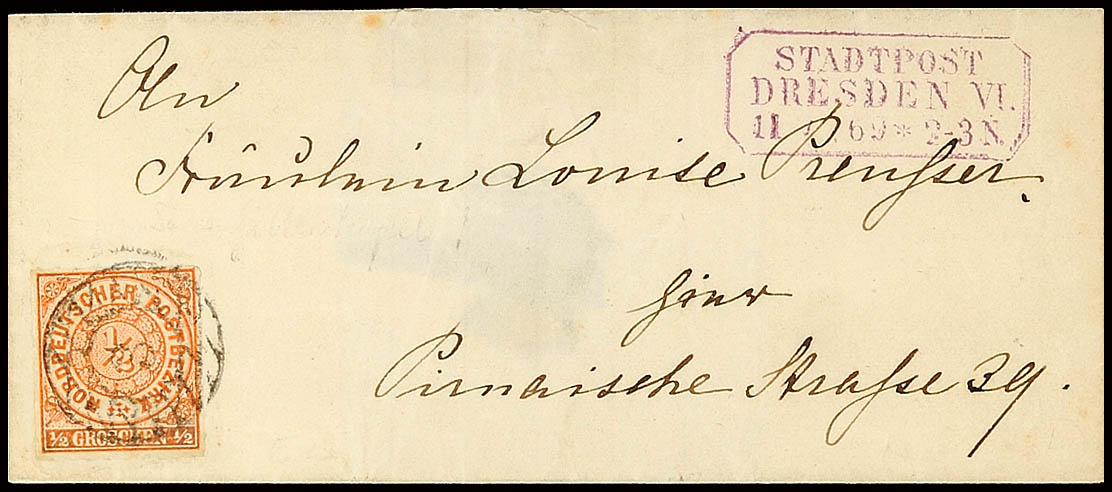 STADTPOST
DRESDEN VI.
11 69 * 2-3 N.
An
Fräulein Louise Preusser.
hier
Pirnaische Straße 39.
NORDDEUTSCHER POSTBEZIRK
1/2 GROSCHEN 1/2